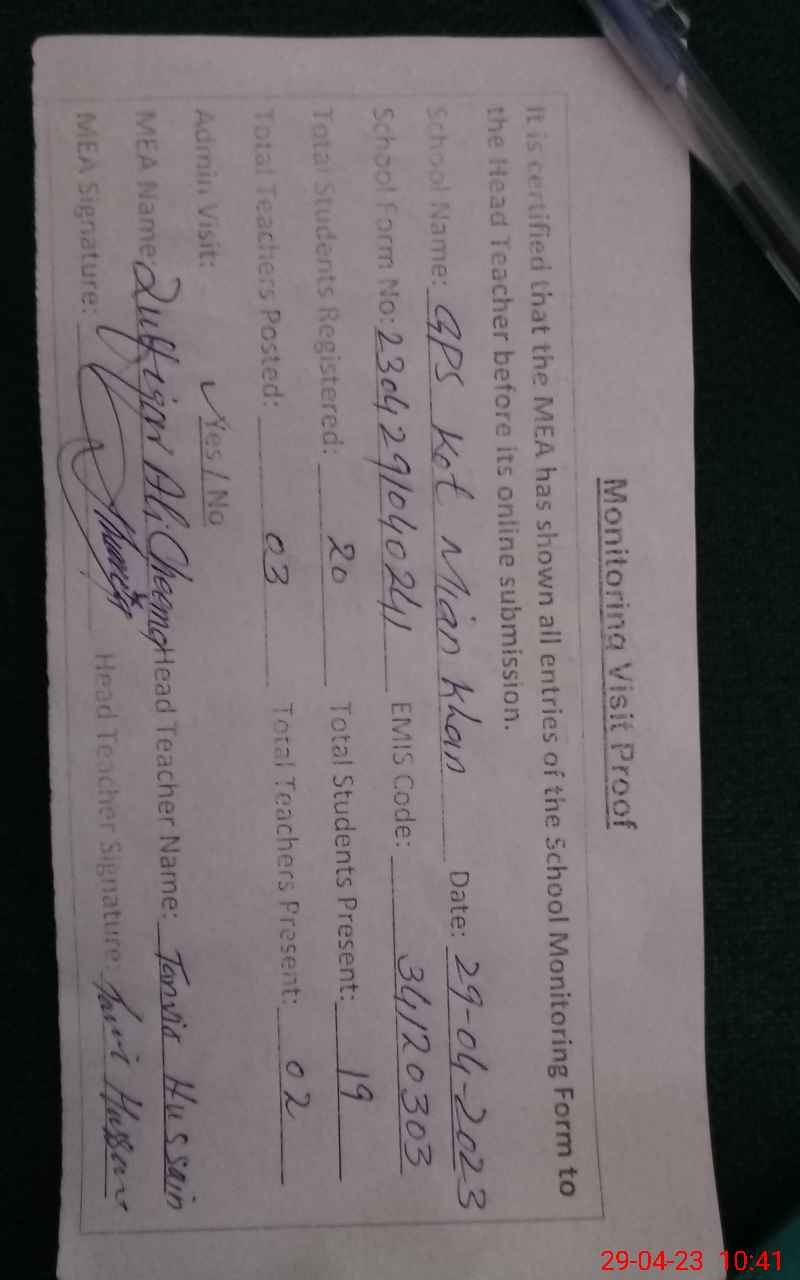 Monitoring Visit Proof
It is certified that the MEA has shown all entries of the School Monitoring Form to
the Head Teacher before its online submission.
School Name: GPS Kot Mian Khan Date: 29-04-2023
School Form No: 2304291040241 EMIS Code: 34120303
Total Students Registered: 20 Total Students Present: 19
Total Teachers Posted: 03 Total Teachers Present: 02
Admin Visit: ✓Yes / No
MEA Name: Zulfiqar Ali Cheema Head Teacher Name: Tanvir Hussain
MEA Signature: Head Teacher Signature:
29-04-23 10:41